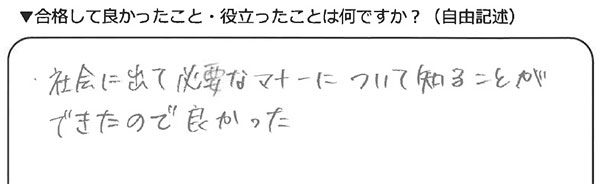 ▼合格して良かったこと・役立ったことは何ですか？（自由記述）
・社会に出て必要なマナーについて知ることが
できたので良かった